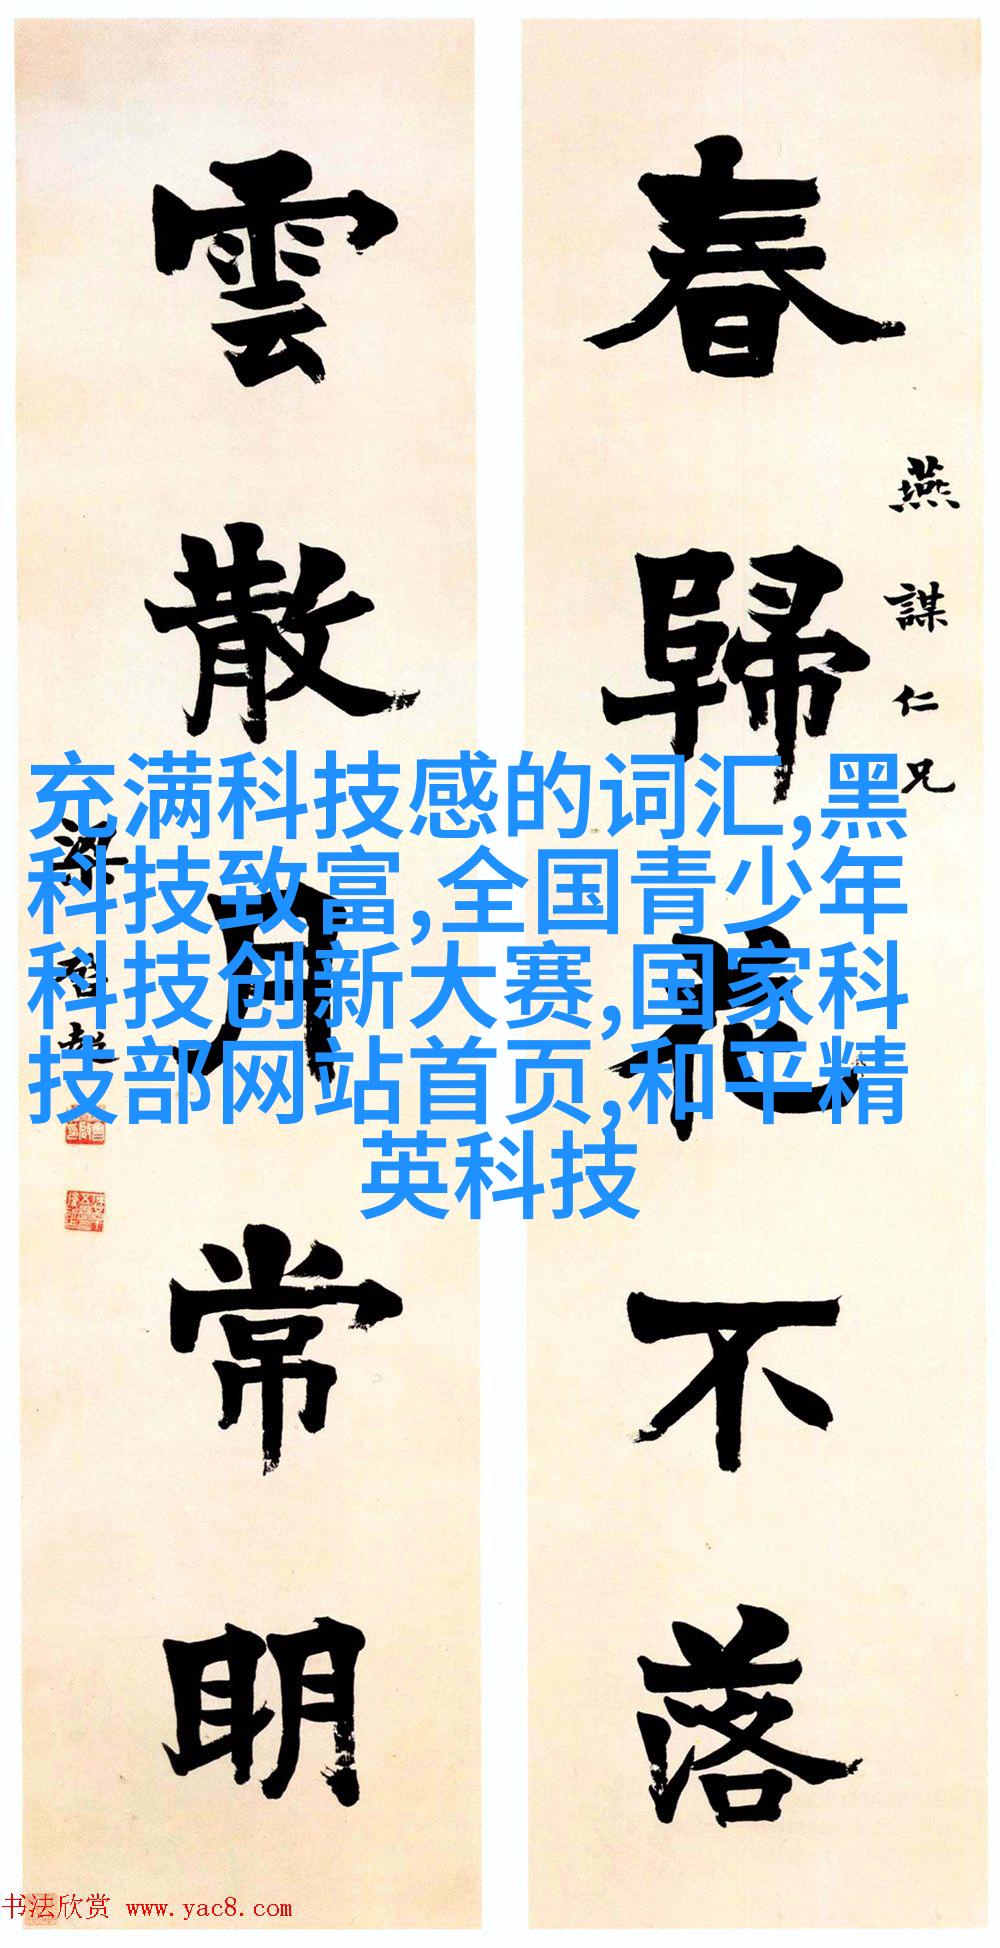 春歸花不落
燕謀仁兄
雲散月常明
梁啟超
充满科技感的词汇,黑
科技致富,全国青少年
科技创新大赛,国家科
技部网站首页,和平精
英科技
书法欣赏 www.yac8.com